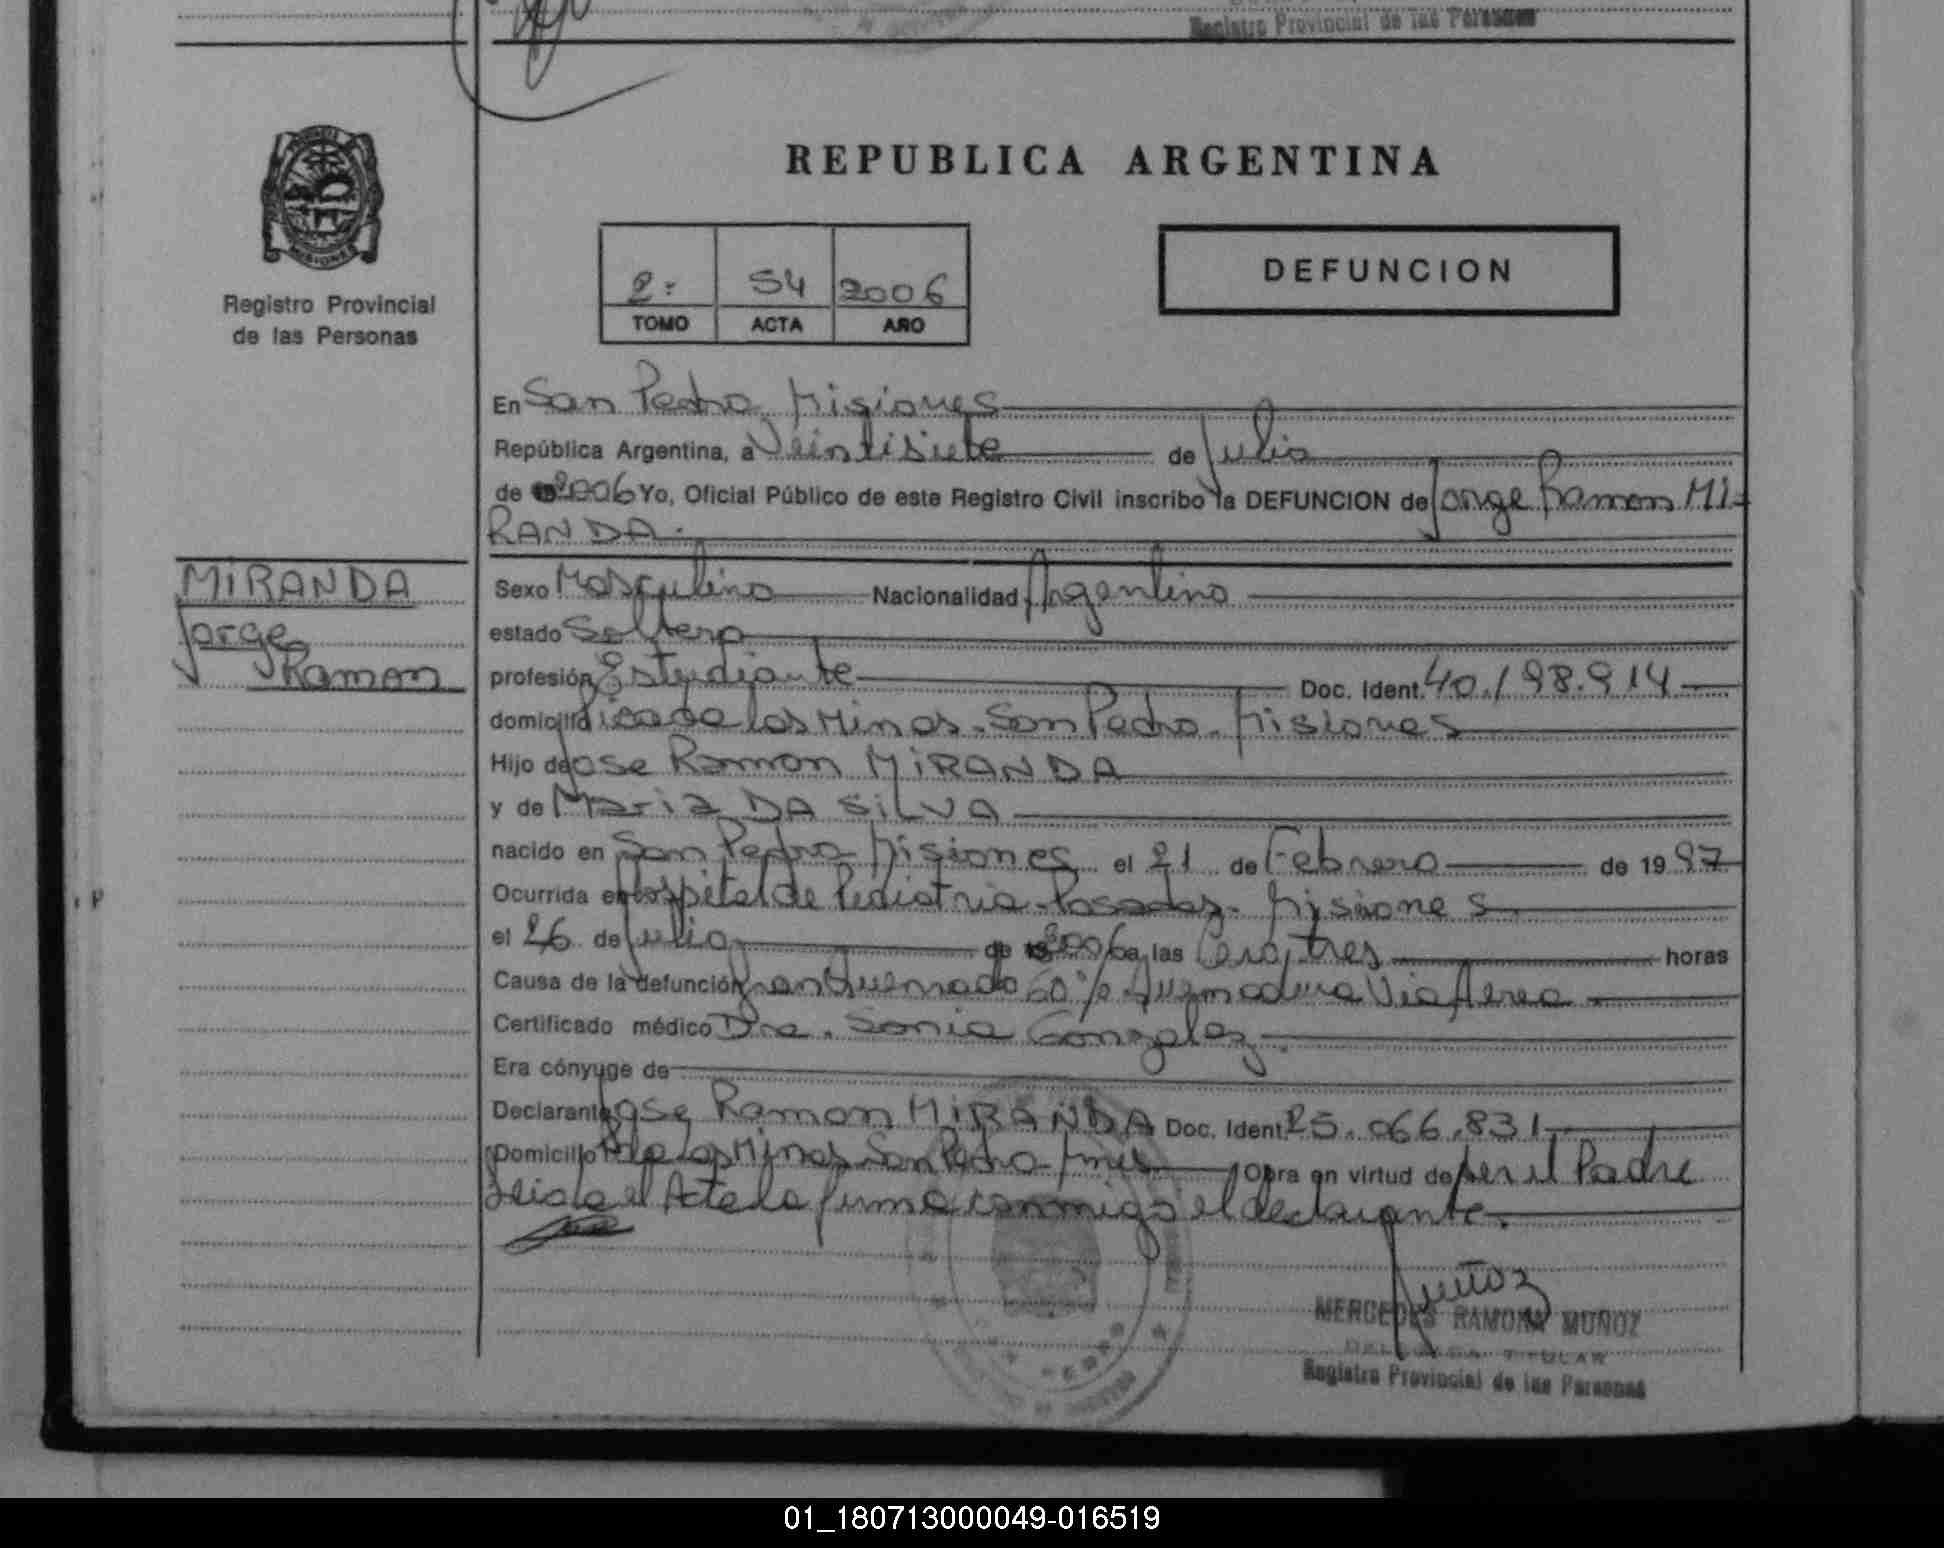 Registro Provincial de las Personas
REPUBLICA ARGENTINA
MISIONES
Registro Provincial
de las Personas
2: 54 2006
TOMO ACTA AÑO
DEFUNCION
En San Pedro Misiones
República Argentina, a Veintisiete de Julio
de 2006 Yo, Oficial Público de este Registro Civil inscribo la DEFUNCION de Jorge Ramon MI-
RANDA.
MIRANDA
Jorge
Ramon
Sexo Masculino Nacionalidad Argentino
estado Soltero
profesión Estudiante Doc. Ident. 40.198.914
domicilio Picada las Minas. San Pedro. Misiones
Hijo de Jose Ramon MIRANDA
y de Maria DA SILVA
nacido en San Pedro Misiones el 21 de Febrero de 1997
Ocurrida en Hospital de Pediatria. Posadas. Misiones
el 26 de Julio de 2006 a las Cero, tres horas
Causa de la defunción Gran Quemado 60% Quemadura Via Aerea
Certificado médico Dra. Sonia Gonzalez.
Era cónyuge de
Declarante Jose Ramon MIRANDA Doc. Ident. 25.066.831
Domicilio Pda las Minas San Pedro Mnes Obra en virtud de ser el Padre
Leida el Acta la firma conmigo el declarante.
Muñoz
MERCEDES RAMONA MUÑOZ
DELEGADA TITULAR
Registro Provincial de las Personas
01_180713000049-016519